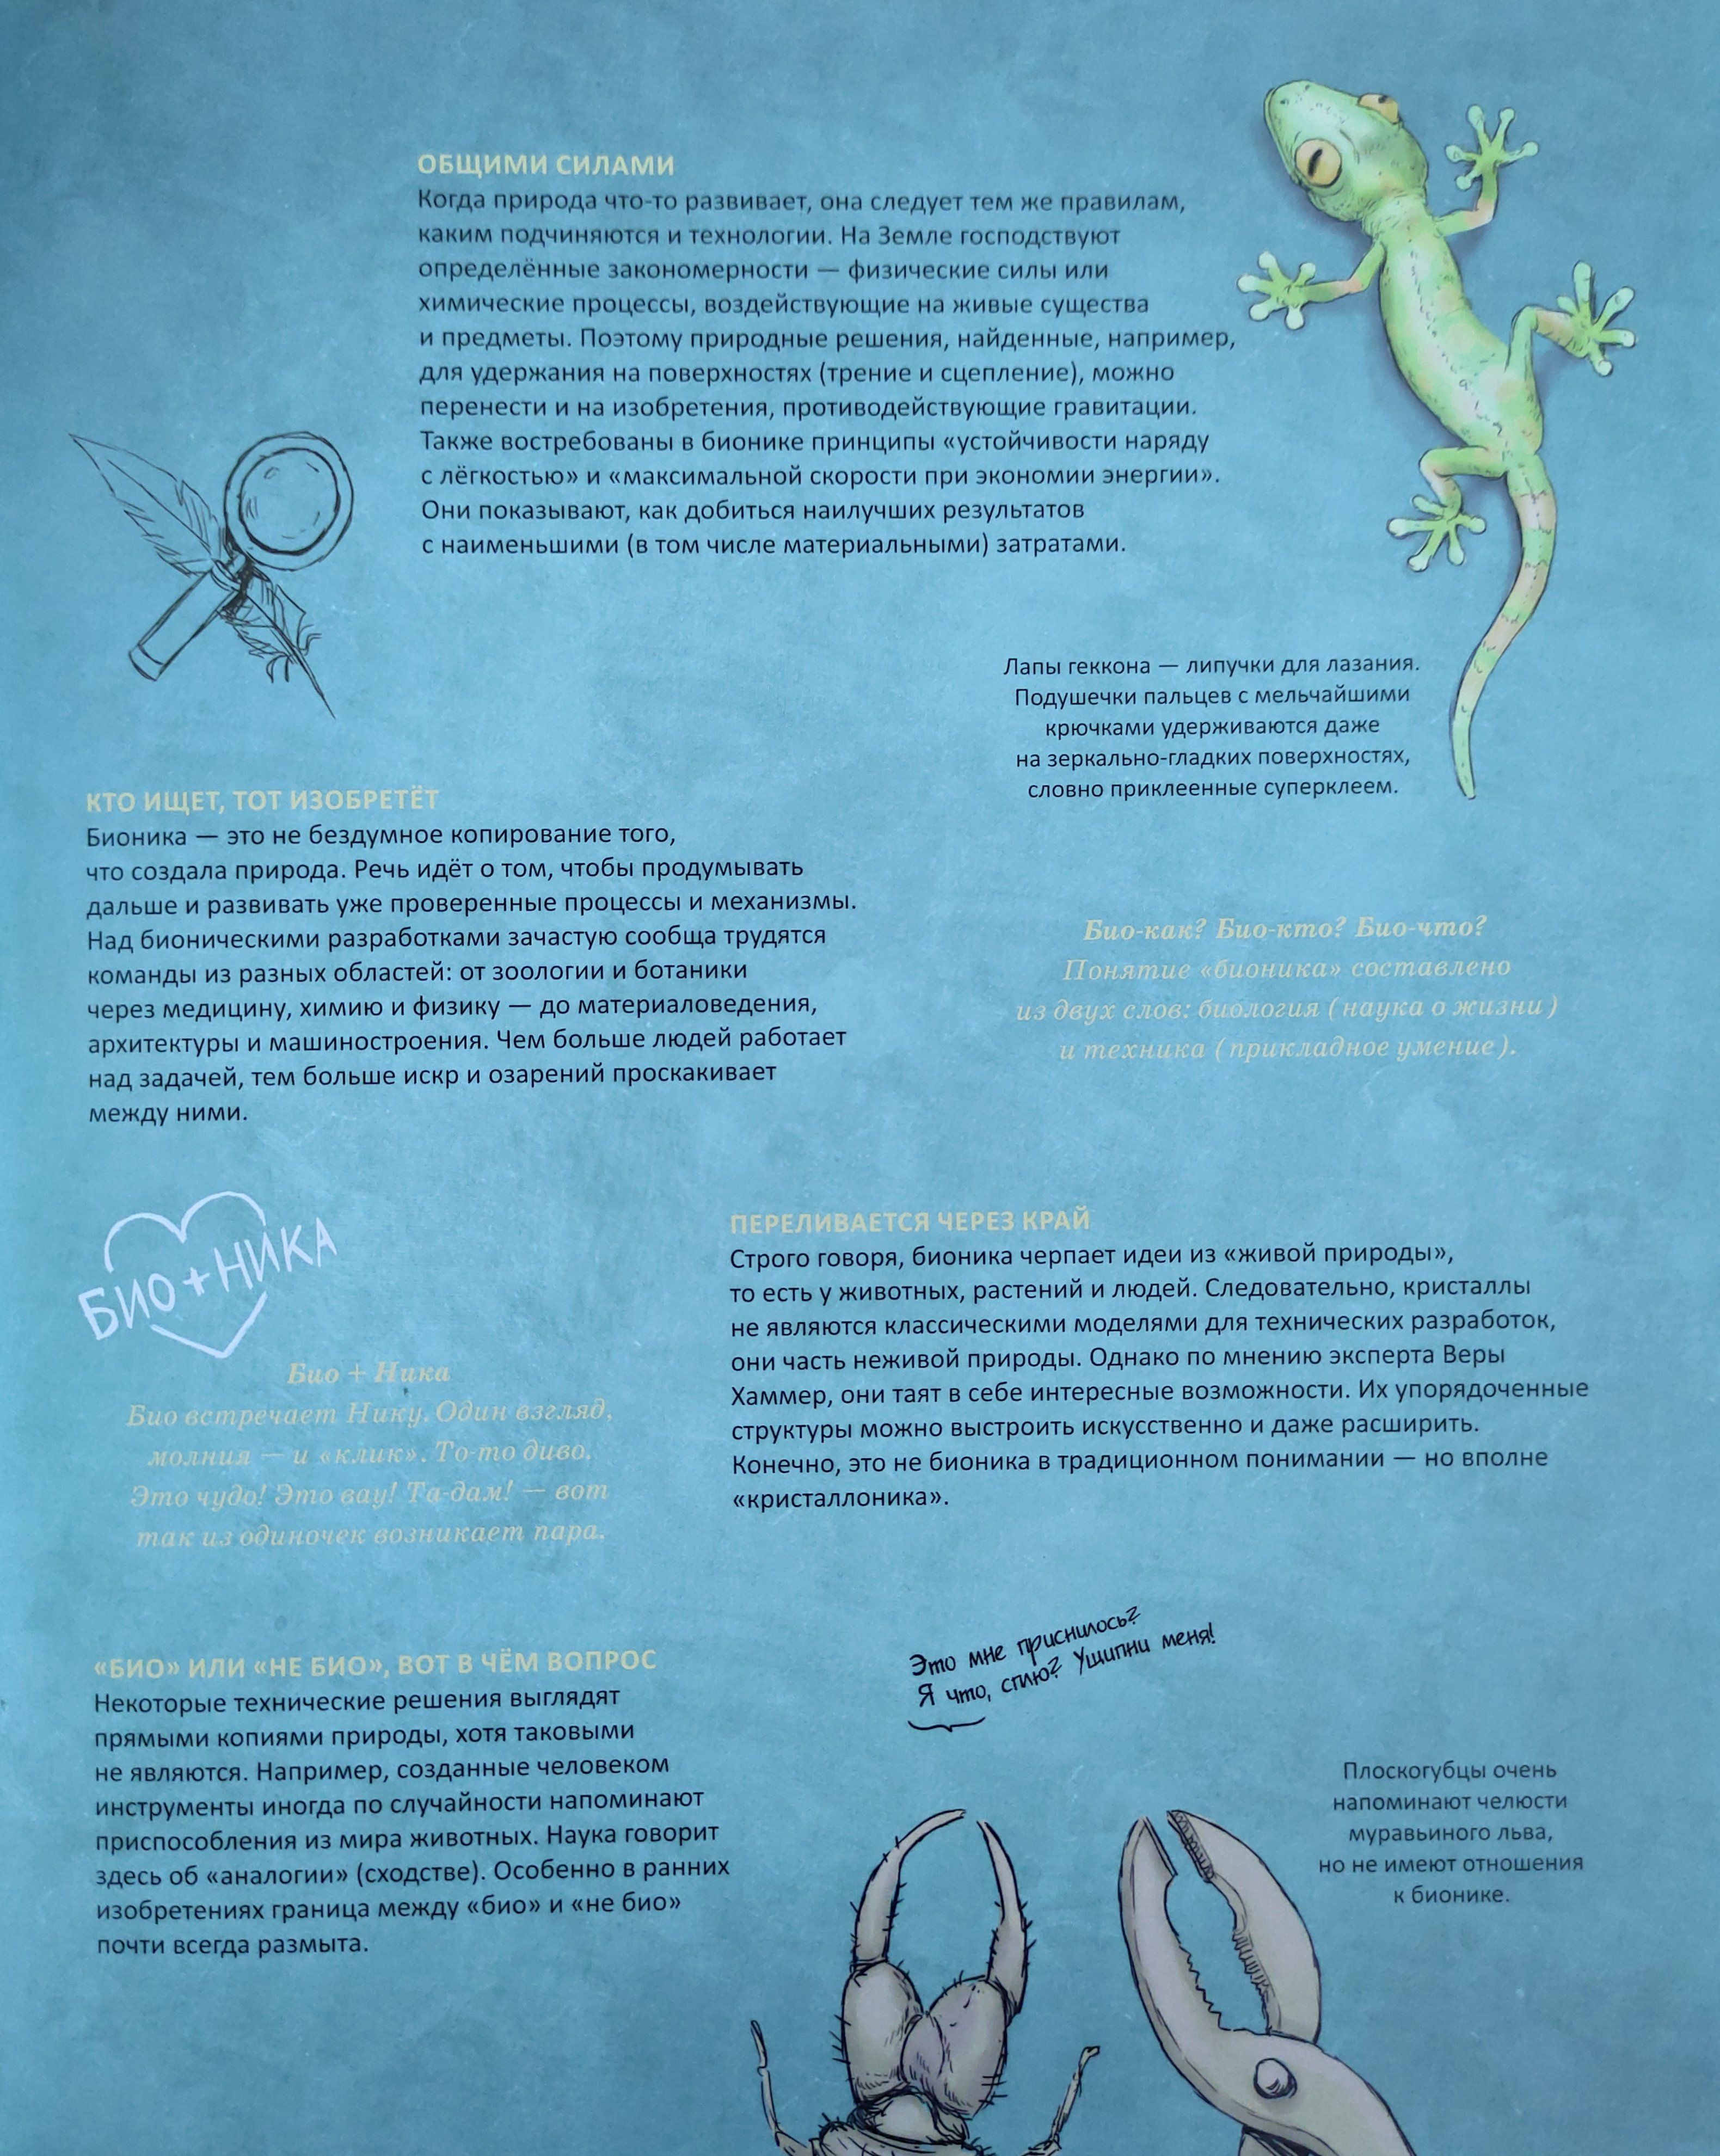 ОБЩИМИ СИЛАМИ
Когда природа что-то развивает, она следует тем же правилам,
каким подчиняются и технологии. На Земле господствуют
определённые закономерности — физические силы или
химические процессы, воздействующие на живые существа
и предметы. Поэтому природные решения, найденные, например,
для удержания на поверхностях (трение и сцепление), можно
перенести и на изобретения, противодействующие гравитации.
Также востребованы в бионике принципы «устойчивости наряду
с лёгкостью» и «максимальной скорости при экономии энергии».
Они показывают, как добиться наилучших результатов
с наименьшими (в том числе материальными) затратами.
Лапы геккона — липучки для лазания.
Подушечки пальцев с мельчайшими
крючками удерживаются даже
на зеркально-гладких поверхностях,
словно приклеенные суперклеем.
КТО ИЩЕТ, ТОТ ИЗОБРЕТЁТ
Бионика — это не бездумное копирование того,
что создала природа. Речь идёт о том, чтобы продумывать
дальше и развивать уже проверенные процессы и механизмы.
Над бионическими разработками зачастую сообща трудятся
команды из разных областей: от зоологии и ботаники
через медицину, химию и физику — до материаловедения,
архитектуры и машиностроения. Чем больше людей работает
над задачей, тем больше искр и озарений проскакивает
между ними.
Био-как? Био-кто? Био-что?
Понятие «бионика» составлено
из двух слов: биология (наука о жизни)
и техника (прикладное умение).
БИО+НИКА
Био + Ника
Био встречает Нику. Один взгляд,
молния — и «клик». То-то диво.
Это чудо! Это вау! Та-дам! — вот
так из одиночек возникает пара.
ПЕРЕЛИВАЕТСЯ ЧЕРЕЗ КРАЙ
Строго говоря, бионика черпает идеи из «живой природы»,
то есть у животных, растений и людей. Следовательно, кристаллы
не являются классическими моделями для технических разработок,
они часть неживой природы. Однако по мнению эксперта Веры
Хаммер, они таят в себе интересные возможности. Их упорядоченные
структуры можно выстроить искусственно и даже расширить.
Конечно, это не бионика в традиционном понимании — но вполне
«кристаллоника».
«БИО» ИЛИ «НЕ БИО», ВОТ В ЧЁМ ВОПРОС
Некоторые технические решения выглядят
прямыми копиями природы, хотя таковыми
не являются. Например, созданные человеком
инструменты иногда по случайности напоминают
приспособления из мира животных. Наука говорит
здесь об «аналогии» (сходстве). Особенно в ранних
изобретениях граница между «био» и «не био»
почти всегда размыта.
Это мне приснилось?
Я что, сплю? Ущипни меня!
Плоскогубцы очень
напоминают челюсти
муравьиного льва,
но не имеют отношения
к бионике.